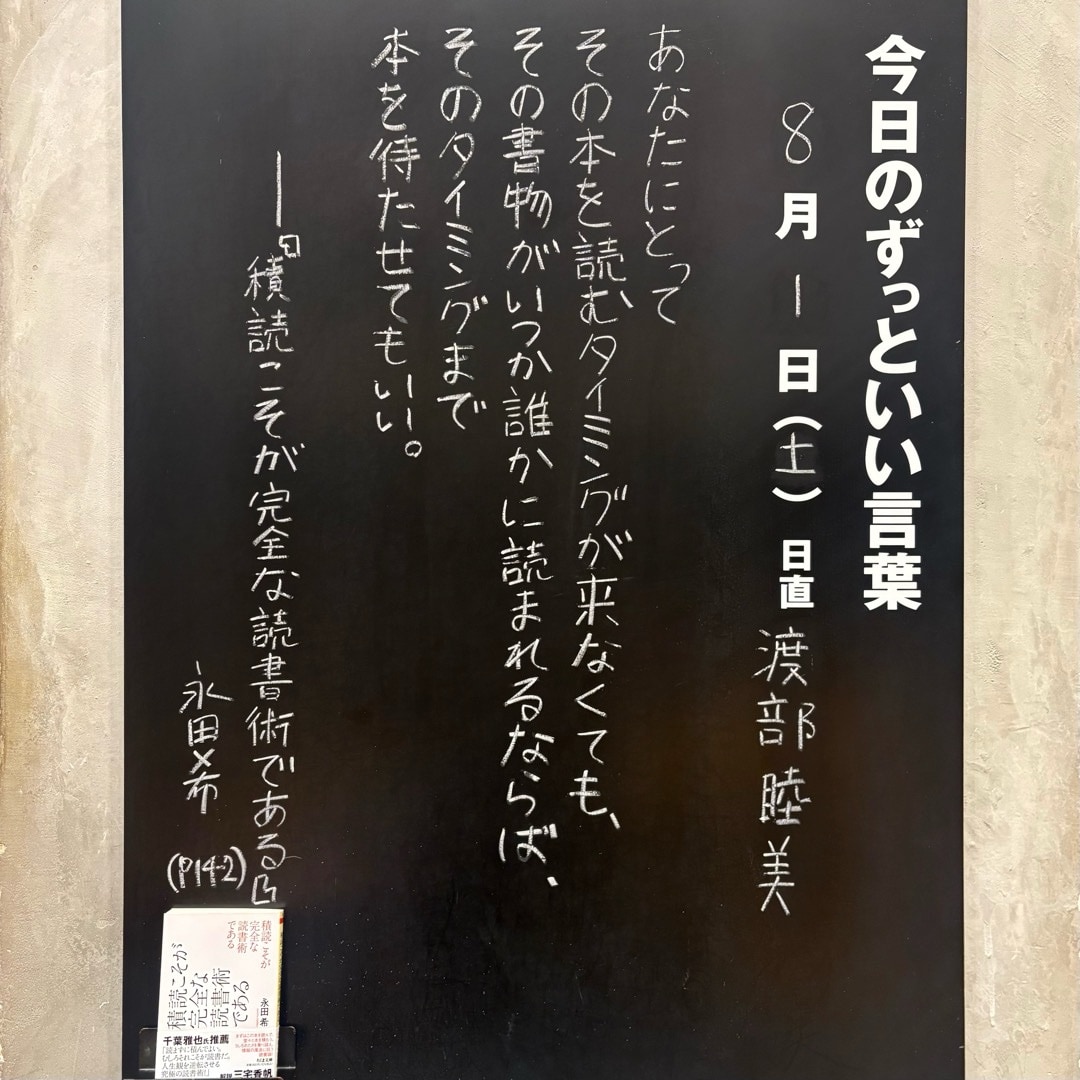 今日のずっといい言葉
8月1日(土) 日直 渡部睦美
あなたにとって
その本を読むタイミングが来なくても、
その書物がいつか誰かに読まれるならば、
そのタイミングまで
本を待たせてもいい。
――『積読こそが完全な読書術である』
永田希
(P142)
積読こそが
完全な
読書術
である
積読こそが
完全な
読書術
である
永田希
千葉雅也氏推薦
「読まずに積んでよい。
むしろそれこそが読書だ。
人生観を逆転させる
究極の読書術!」
解説 三宅香帆
ちくま文庫